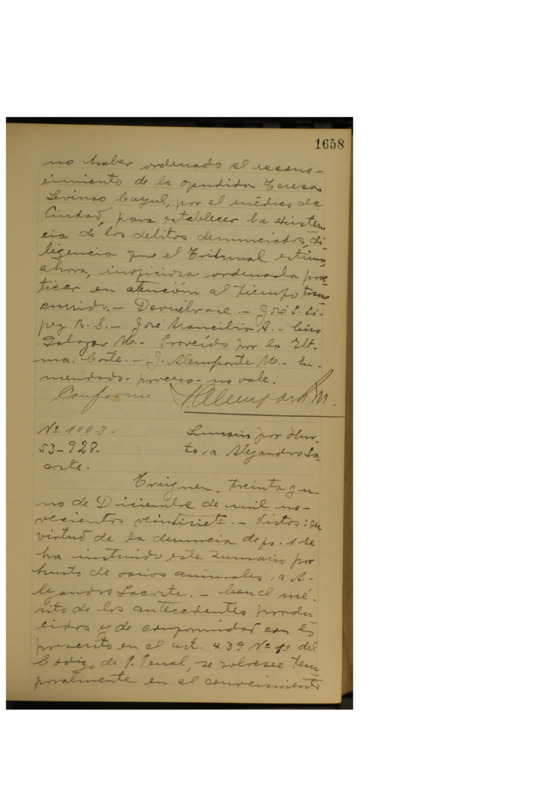 1658
no haber ordenado el recono-
cimiento de la ofendida Teresa
Levinao Cayul, por el médico de
Ciudad, para establecer la existen
cia de los delitos denunciados, di-
ligencia que el Tribunal estima
ahora, inoficioso ordenarla prac
ticar en atención al tiempo trans
currido.- Devuélvase.- José L. Ló-
pez R. S.- José Arancibia A.- Ciro
Salazar M.- Proveído por la Ilt-
ma. Corte.- J. Alemparte M.- En-
mendado- proceso- no vale.
Conforme J Alemparte M.
Nº 1003.
53-928.
Sumario por Hur-
to, a Alejandro La-
corte.
Traiguen, treinta y u-
no de Diciembre de mil no-
vecientos veintisiete.- Vistos: en
virtud de la denuncia de fs. 1 se
ha instruido este sumario por
hurto de varios animales, a A-
lejandro Lacorte.- Con el mé-
rito de los antecedentes produ
cidos y de conformidad con lo
prescrito en el art. 439 Nº 1º del
Código de P. Penal, se sobresee tem-
poralmente en el conocimiento